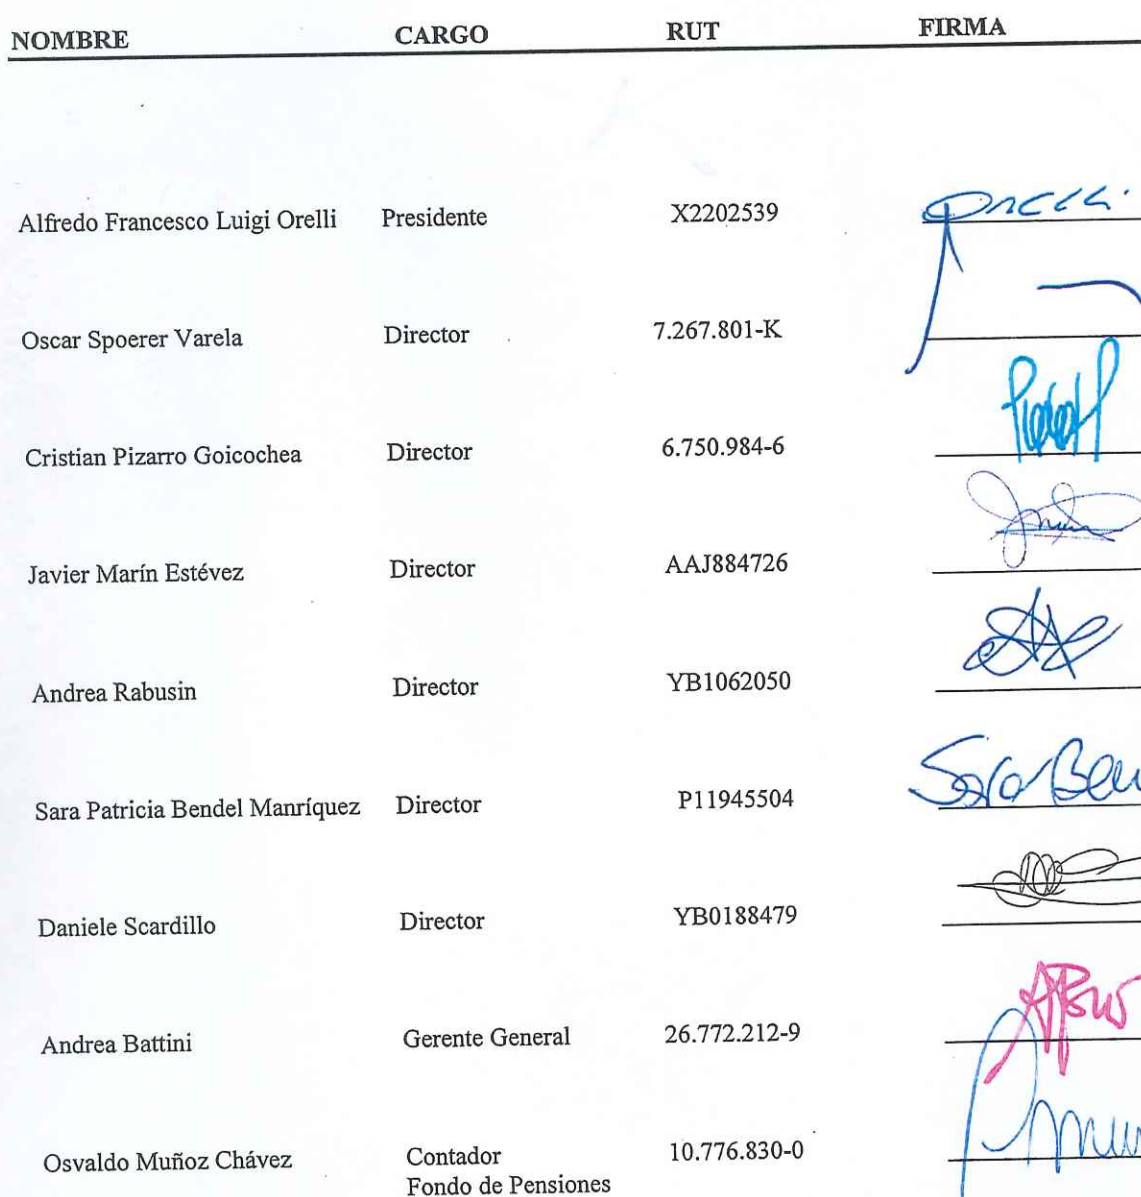 NOMBRE CARGO RUT FIRMA
Alfredo Francesco Luigi Orelli Presidente X2202539 Orelli
Oscar Spoerer Varela Director 7.267.801-K
Cristian Pizarro Goicochea Director 6.750.984-6
Javier Marín Estévez Director AAJ884726
Andrea Rabusin Director YB1062050
Sara Patricia Bendel Manríquez Director P11945504 Sara Ben
Daniele Scardillo Director YB0188479
Andrea Battini Gerente General 26.772.212-9
Osvaldo Muñoz Chávez Contador 10.776.830-0
Fondo de Pensiones